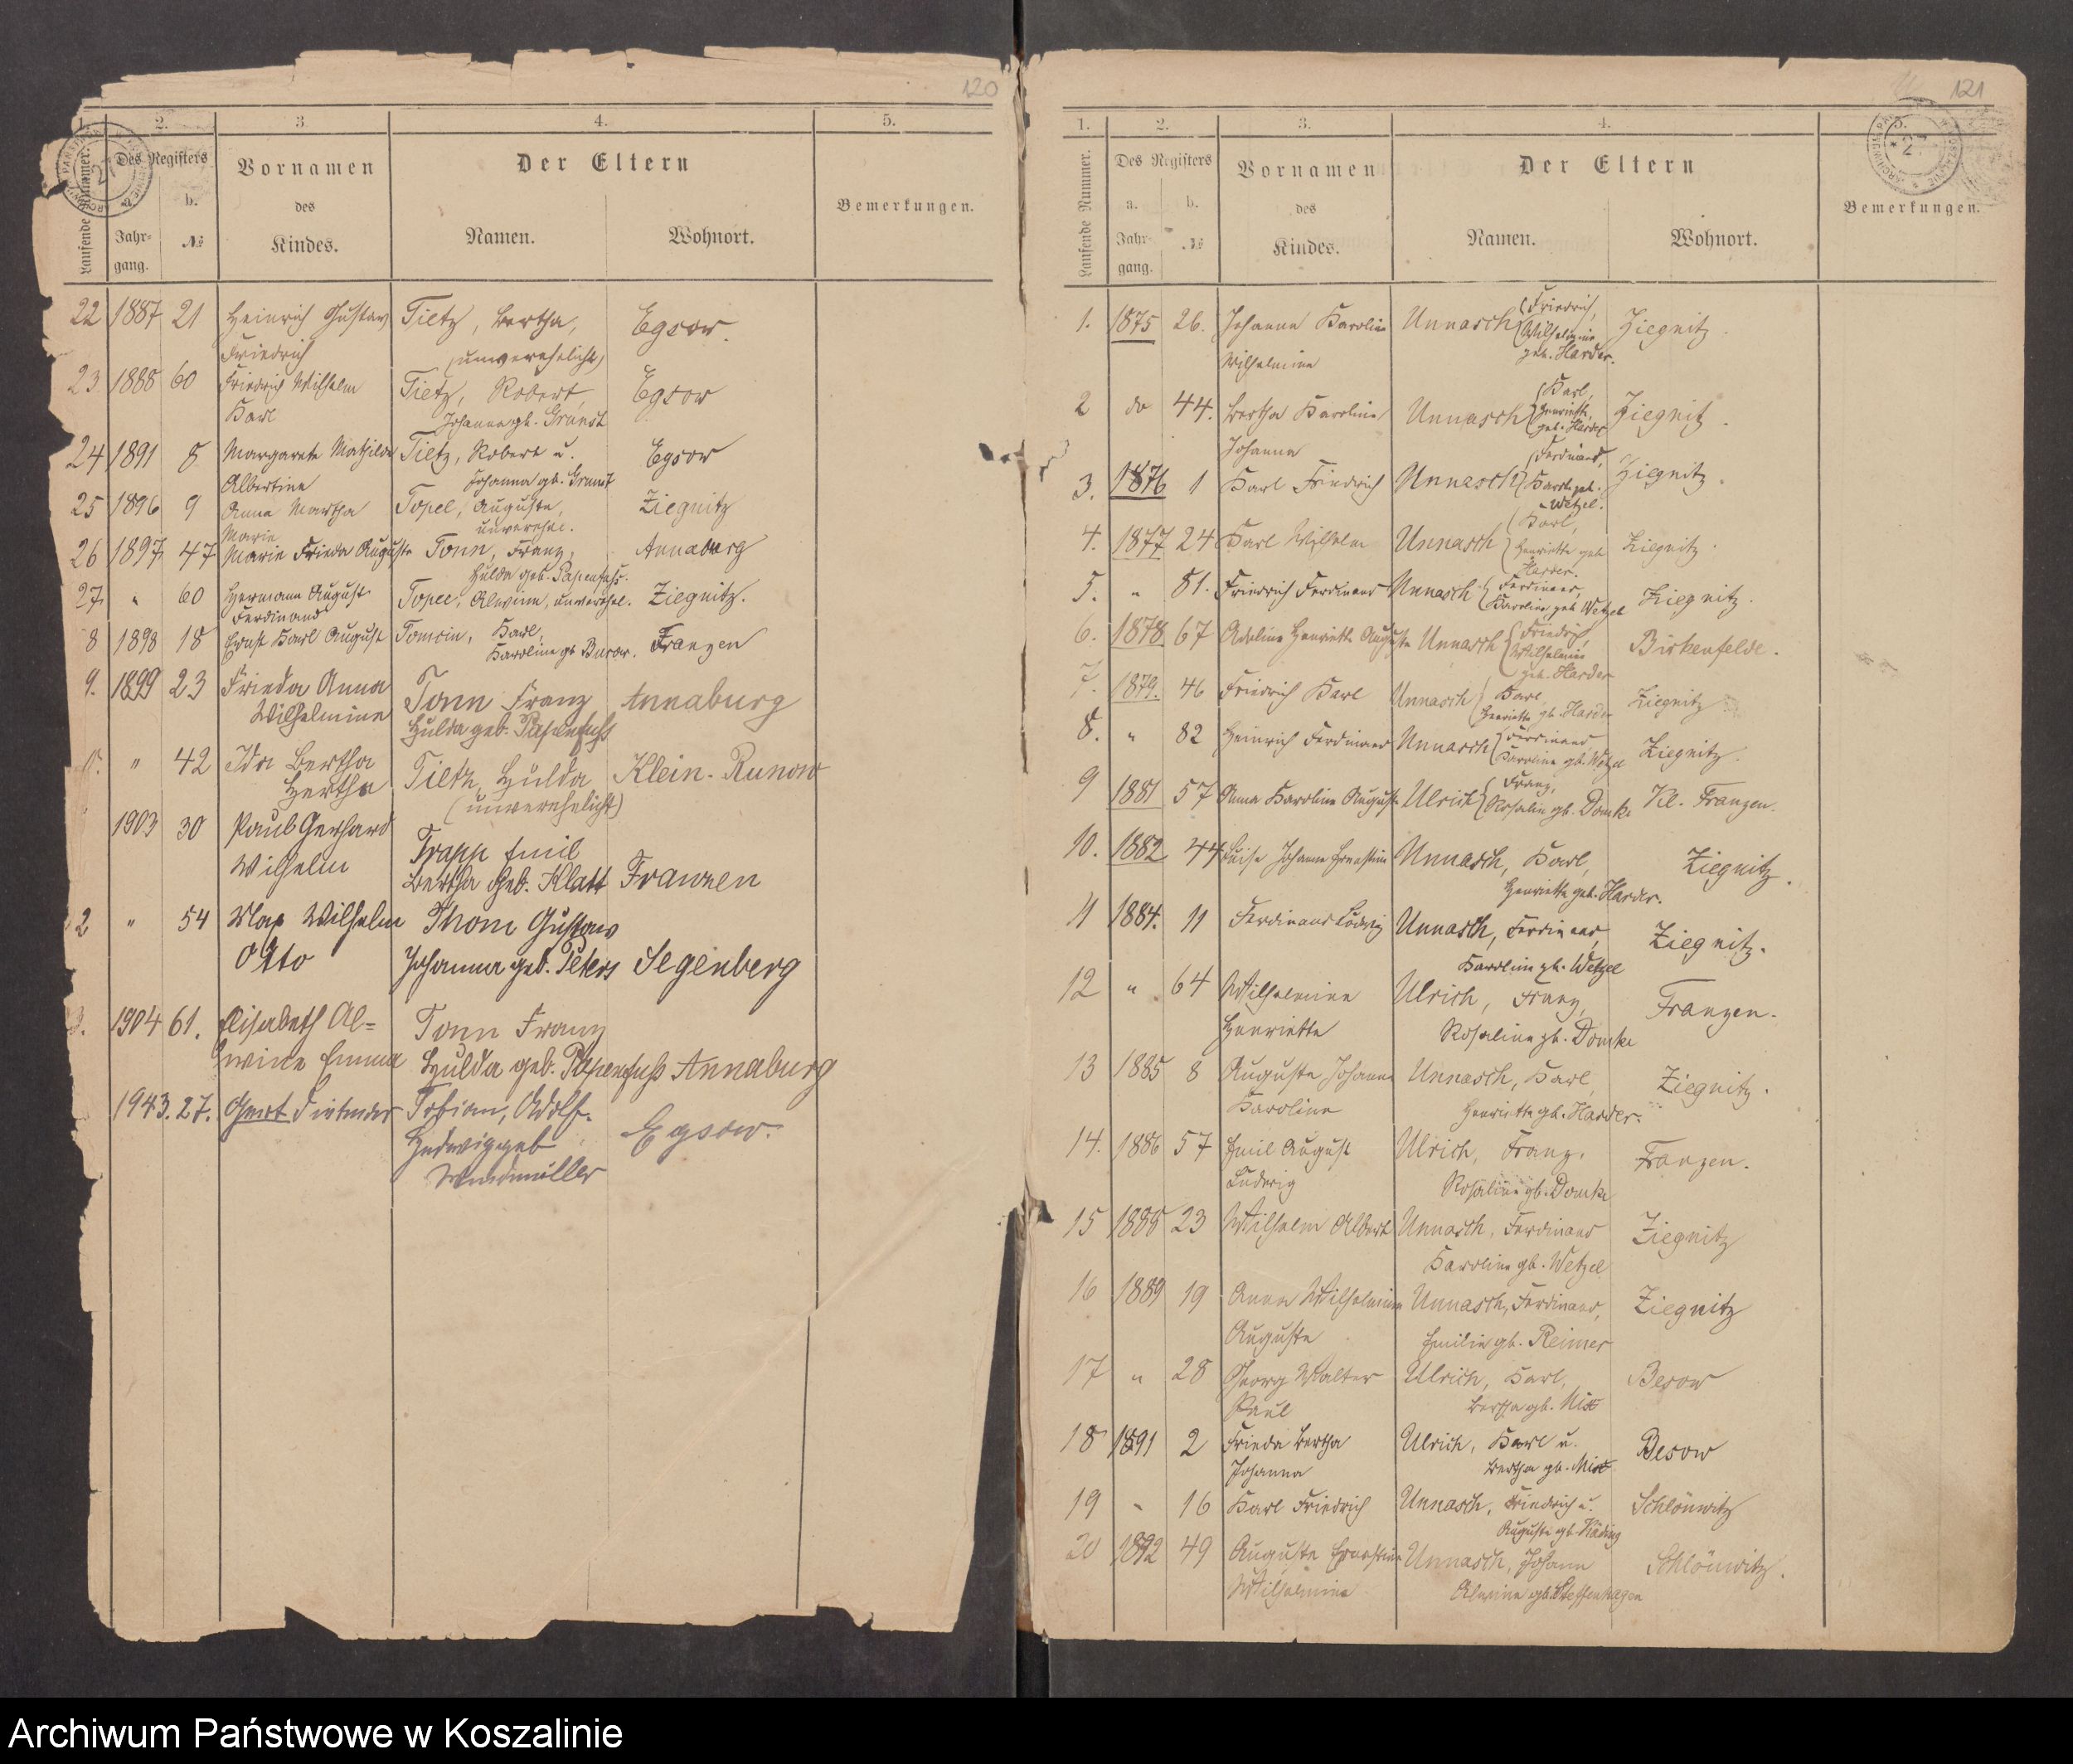 120
1.
2.
3.
4.
5.
Laufende Nummer.
Des Registers
a.
b.
Jahr-
gang.
№
Vornamen
des
Kindes.
Der Eltern
Namen.
Wohnort.
Bemerkungen.
22 1887 21 Heinrich Gustav Tietz, Bertha, Egsow.
Friedrich (unverehelicht)
23 1888 60 Friedrich Wilhelm Tietz, Robert, Egsow
Karl Johanna gb.
24 1891 8 Margarete Mathilde Tietz, Robert u. Egsow
Albertine Johanna gb.
25 1896 9 Anna Martha Topel, Auguste, Ziegnitz
Marie unverehel.
26 1897 47 Marie Frieda Auguste Tonn, Franz, Annaburg
Hulda geb. Papenfuß.
27 " 60 Hermann August Topel, Alwine, unverehel. Ziegnitz.
Ferdinand
8 1898 18 Ernst Karl August Karl, Franzen
Karoline gb Burow.
9. 1899 23 Frieda Anna Tonn Franz Annaburg
Wilhelmine Hulda geb. Papenfuß
" 42 Ida Bertha Tietz, Hulda Klein-Runow
Hertha (unverehelicht)
1903 30 Paul Gerhard Trapp Emil
Wilhelm Bertha geb. Klatt Franzen
2 " 54 Max Wilhelm Thom Gustav
Otto Johanna geb. Peters Segenberg
3. 1904 61. Elisabeth Al=
wine Emma Tonn Franz
Hulda geb. Papenfuß Annaburg
1943. 27. Gert Tobian, Adolf. Egsow.
Hedwig geb
Windmüller
121
1.
2.
3.
4.
5.
Laufende Nummer.
Des Registers
a.
b.
Jahr-
gang.
№
Vornamen
des
Kindes.
Der Eltern
Namen.
Wohnort.
Bemerkungen.
1. 1875 26. Johanne Karoline Unnasch Friedrich, Ziegnitz.
Wilhelmine Wilhelmine
geb. Harder.
2 do 44. Bertha Karoline Unnasch Karl, Ziegnitz.
Johanna Henriette,
geb. Harder
3. 1876 1 Karl Friedrich Unnasch Ferdinand, Ziegnitz.
Karol. geb.
Wetzel.
4. 1877 24 Karl Wilhelm Unnasch Karl, Ziegnitz.
Henriette geb
Harder.
5. " 81. Friedrich Ferdinand Unnasch Ferdinand, Ziegnitz.
Karoline geb Wetzel
6. 1878 67 Adeline Henriette Auguste Unnasch Friedrich, Birkenfelde.
Wilhelmine
geb. Harder
7. 1879. 46 Friedrich Karl Unnasch Karl, Ziegnitz
Henriette gb. Harder
8. " 82 Heinrich Ferdinand Unnasch Ferdinand, Ziegnitz.
Karoline gb. Wetzel
9 1881 57 Anna Karoline Auguste Ulrich Franz, Kl. Franzen.
Rosaline gb. Domke
10. 1882 44 Luise Johanne Ernestine Unnasch, Karl, Ziegnitz.
Henriette geb. Harder.
11 1884. 11 Ferdinand Ludwig Unnasch, Ferdinand, Ziegnitz.
Karoline gb. Wetzel
12 " 64 Wilhelmine Ulrich, Franz, Franzen.
Henriette Rosaline gb. Domke
13 1885 8 Auguste Johanne Unnasch, Karl, Ziegnitz.
Karoline Henriette gb. Harder.
14. 1886 57 Emil August Ulrich, Franz, Franzen.
Ludwig Rosaline gb. Domke
15 1888 23 Wilhelm Albert Unnasch, Ferdinand Ziegnitz
Karoline gb. Wetzel
16 1889 19 Anna Wilhelmine Unnasch, Ferdinand, Ziegnitz
Auguste Emilie gb. Reimer
17 " 28 Georg Walter Ulrich, Karl, Besow
Paul Bertha gb.
18 1891 2 Frieda Bertha Ulrich, Karl u. Besow
Johanna Bertha gb.
19 " 16 Karl Friedrich Unnasch, Friedrich u. Schlönwitz
Auguste gb. Käding
20 1892 49 Auguste Ernestine Unnasch, Johann Schlönwitz.
Wilhelmine Alwine gb. Steffenhagen
Archiwum Państwowe w Koszalinie